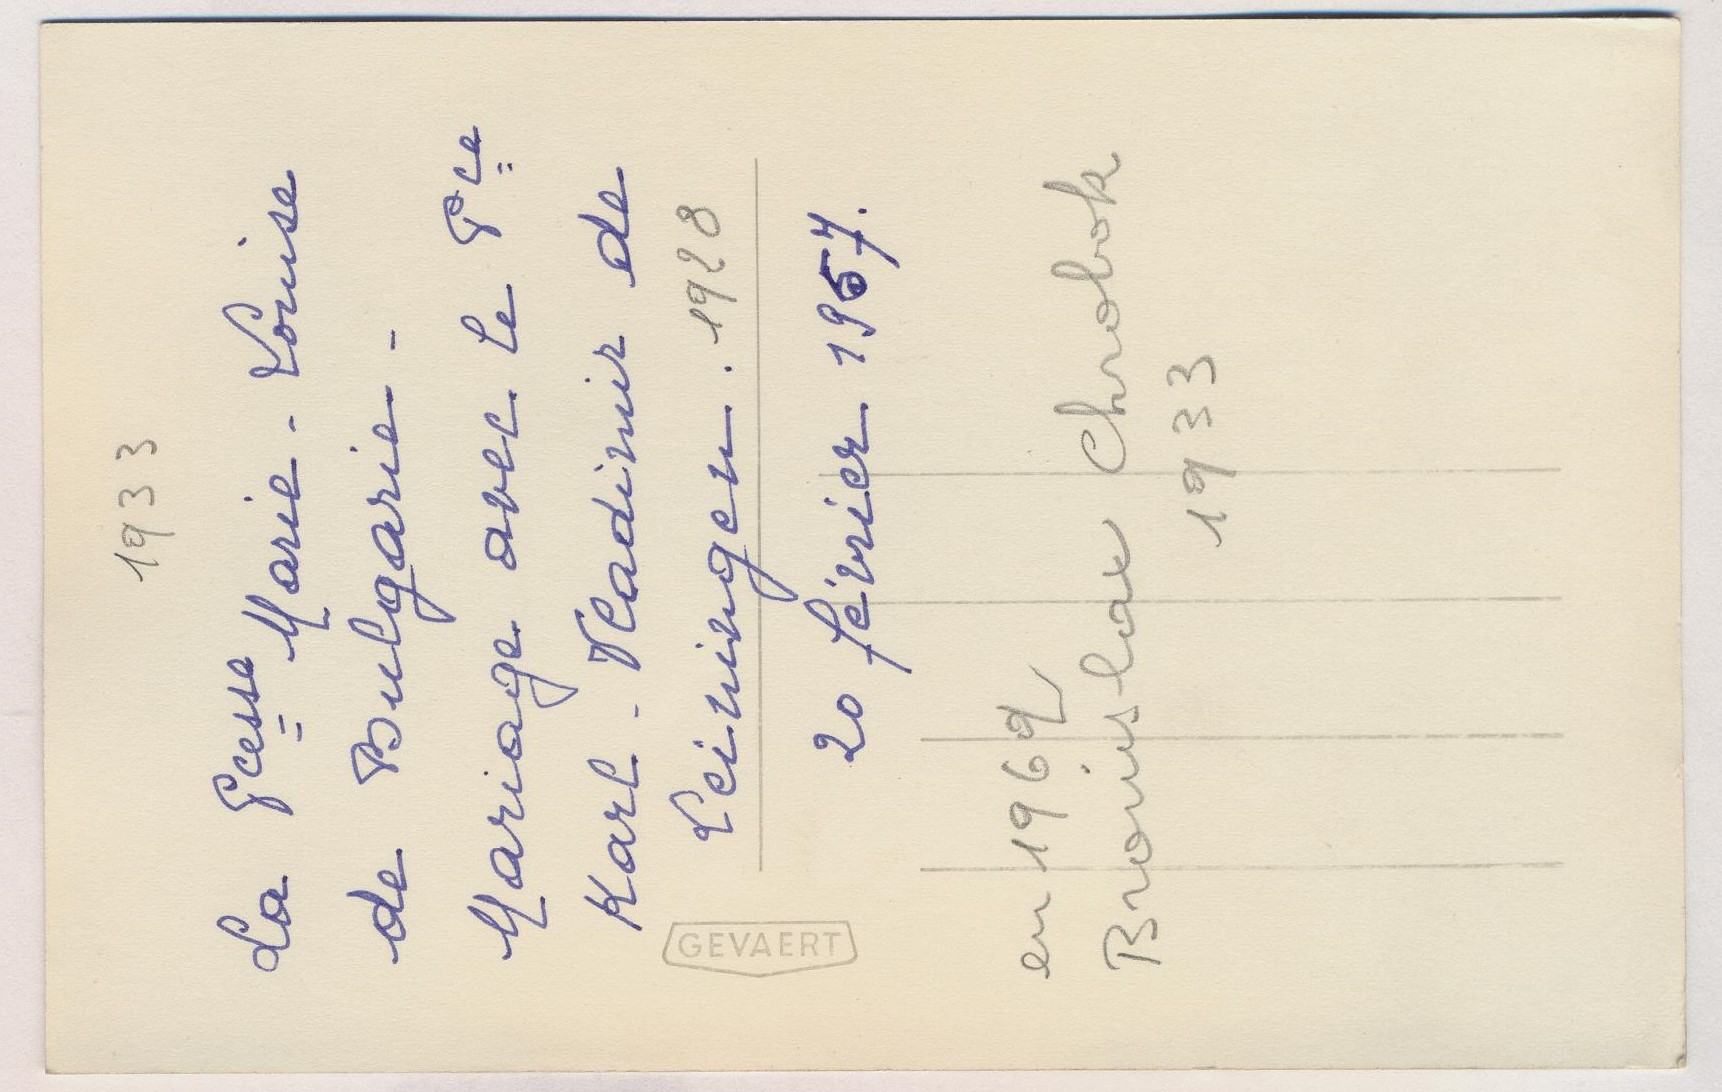 1933
La Pcesse Marie-Louise
de Bulgarie -
Mariage avec le Pce
Karl-Vladimir de
Leiningen. 1928
20 février 1957.
en 1969
Bronislaw Chrobok
1933
GEVAERT